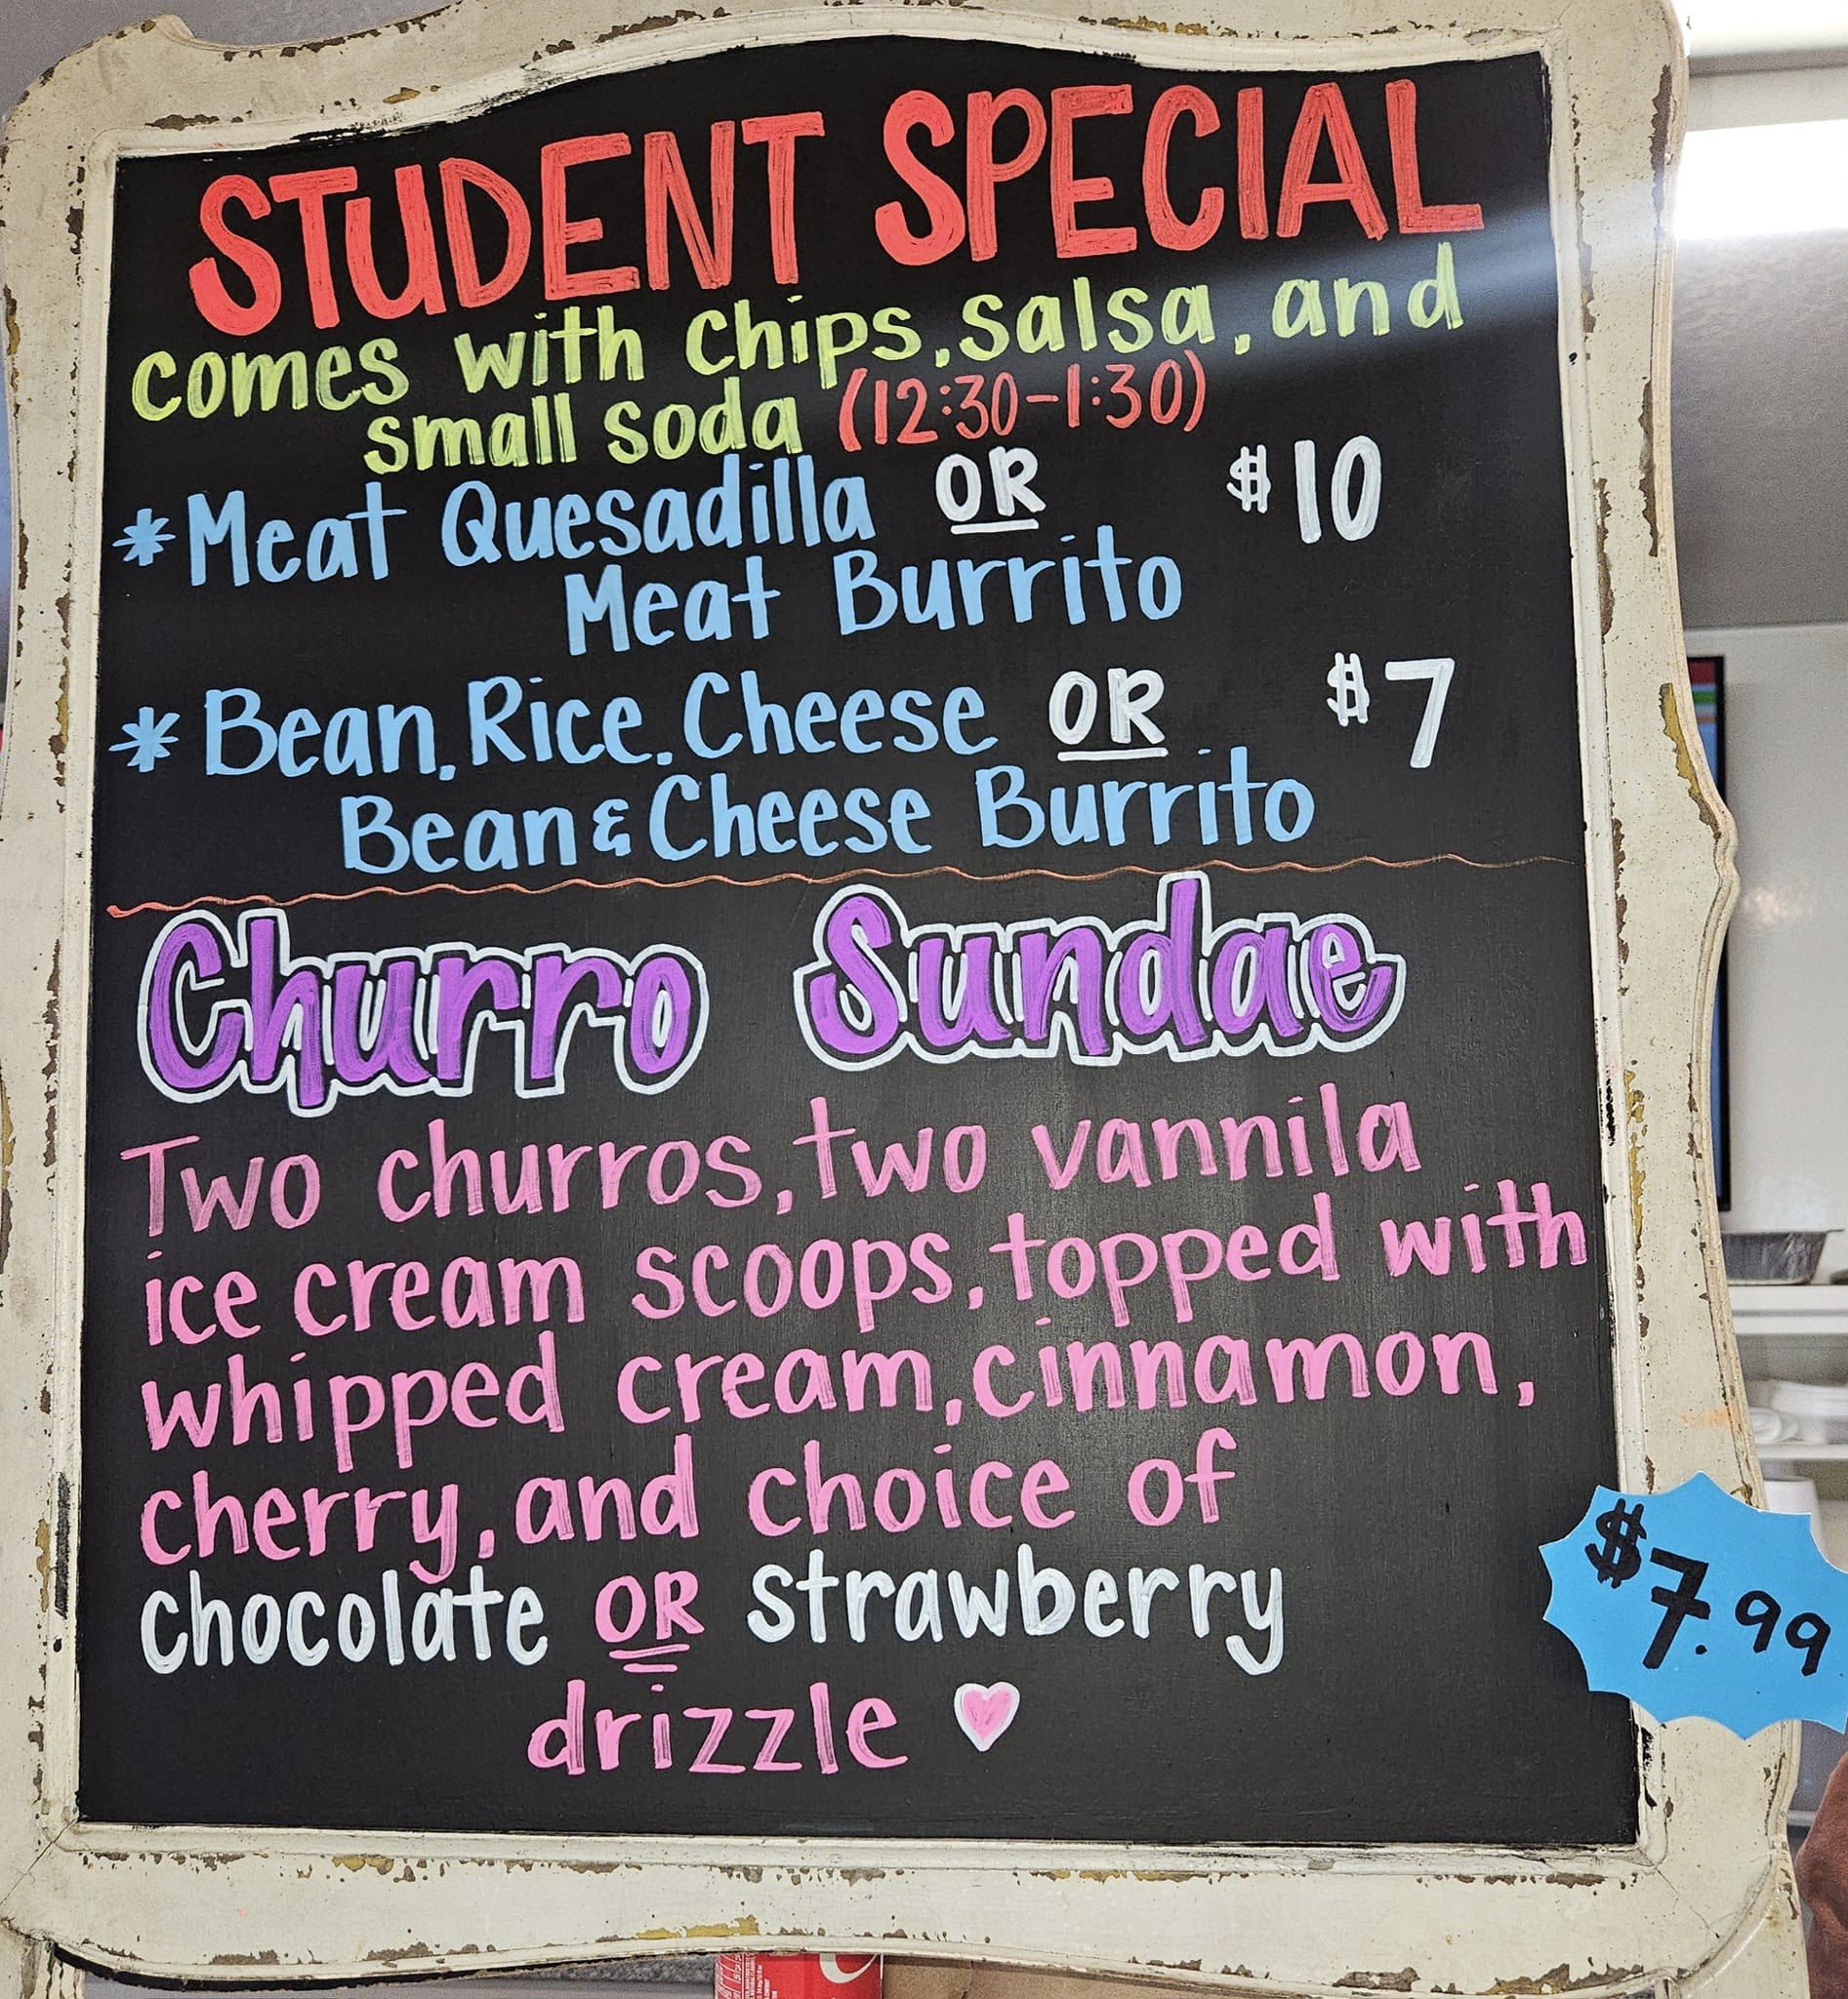 STUDENT SPECIAL
comes with chips, salsa, and
small soda (12:30-1:30)
*Meat Quesadilla OR $10
Meat Burrito
*Bean, Rice, Cheese OR $7
Bean & Cheese Burrito
Churro Sundae
Two churros, two vannila
ice cream scoops, topped with
whipped cream, cinnamon,
cherry, and choice of
chocolate OR strawberry
drizzle
$7.99